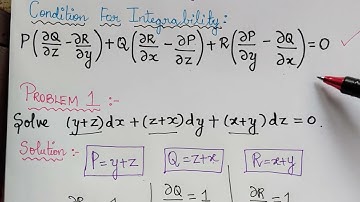 Condition For Integrability:
P(∂Q/∂z - ∂R/∂y) + Q(∂R/∂x - ∂P/∂z) + R(∂P/∂y - ∂Q/∂x) = 0
PROBLEM 1 :-
Solve (y+z)dx + (z+x)dy + (x+y)dz = 0.
Solution :- P = y+z Q = z+x R = x+y
∂Q = 1